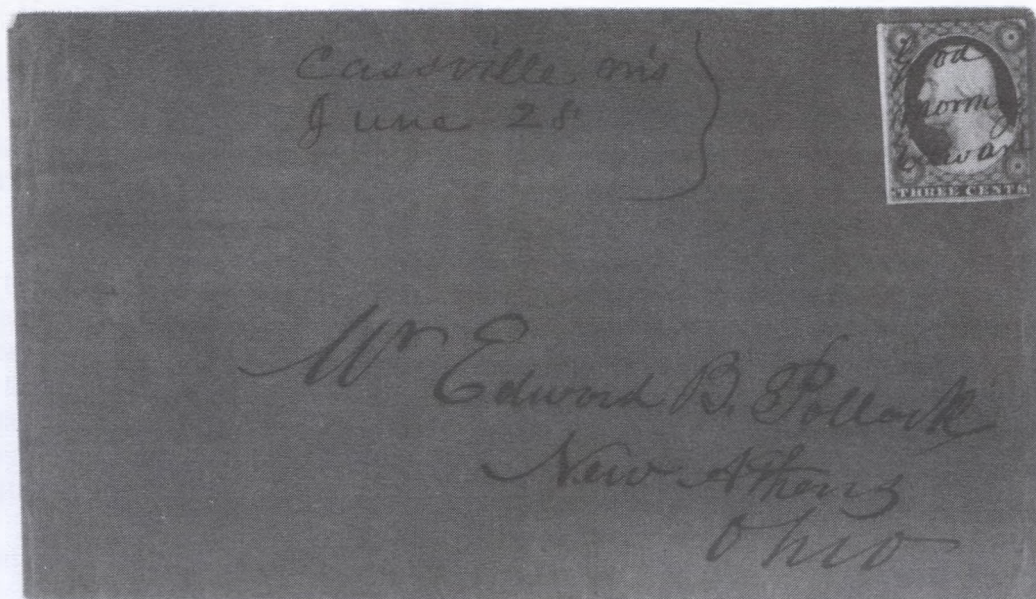 Cassville, Wis
June 28
Good
morning
Edward
THREE CENTS
Mr Edward B. Pollock
New Athens
Ohio